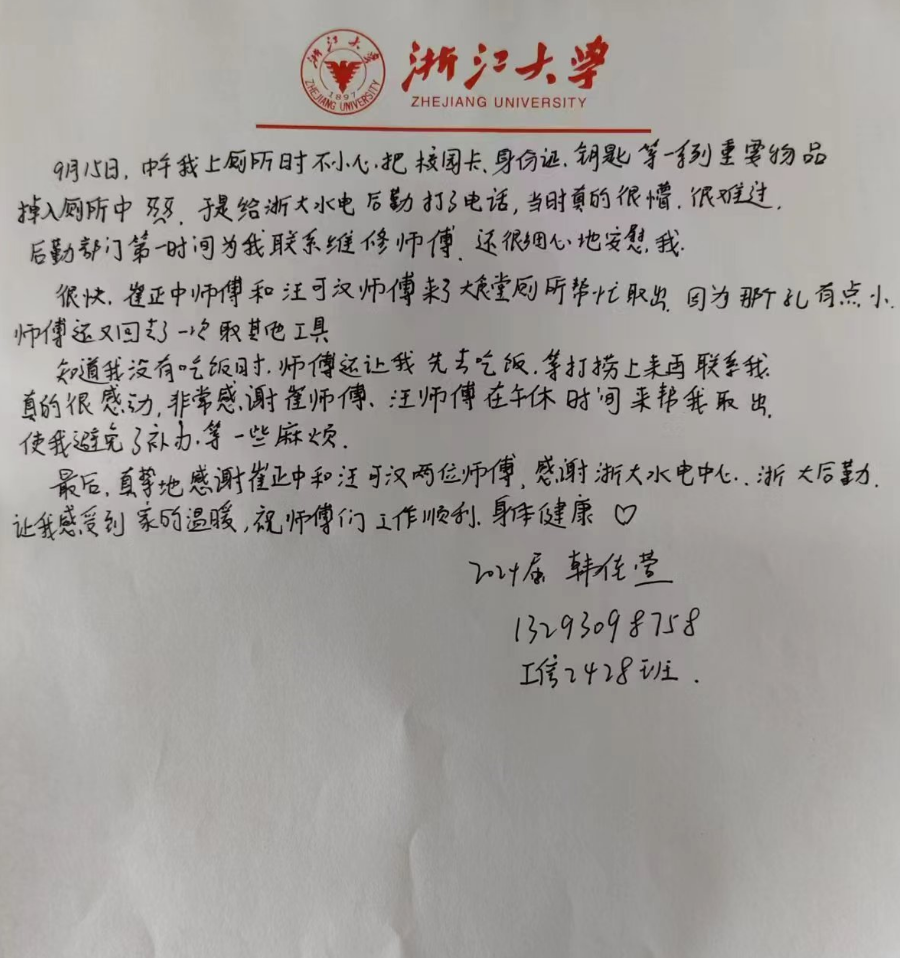 浙江大学
ZHEJIANG UNIVERSITY
1897
浙江大学
ZHEJIANG UNIVERSITY
9月15日，中午我上厕所时不小心把校园卡、身份证、钥匙等一系列重要物品
掉入厕所中，于是给浙大水电后勤打了电话，当时真的很懵，很难过，
后勤部门第一时间为我联系维修师傅，还很细心地安慰我.
很快，崔正中师傅和汪可汉师傅来了大食堂厕所帮忙取出，因为那个孔有点小，
师傅还又回去了一次取其他工具
知道我没有吃饭时，师傅还让我先去吃饭，等打捞上来再联系我.
真的很感动，非常感谢崔师傅、汪师傅在午休时间来帮我取出，
使我避免了补办等一些麻烦.
最后，真挚地感谢崔正中和汪可汉两位师傅，感谢浙大水电中心、浙大后勤，
让我感受到家的温暖，祝师傅们工作顺利，身体健康 ♡
2024届 韩佳萱
13293098758
工信2428班.